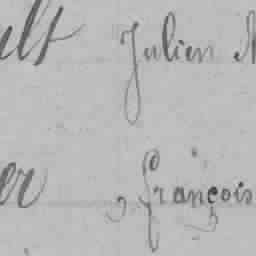 ult Julien
er françois